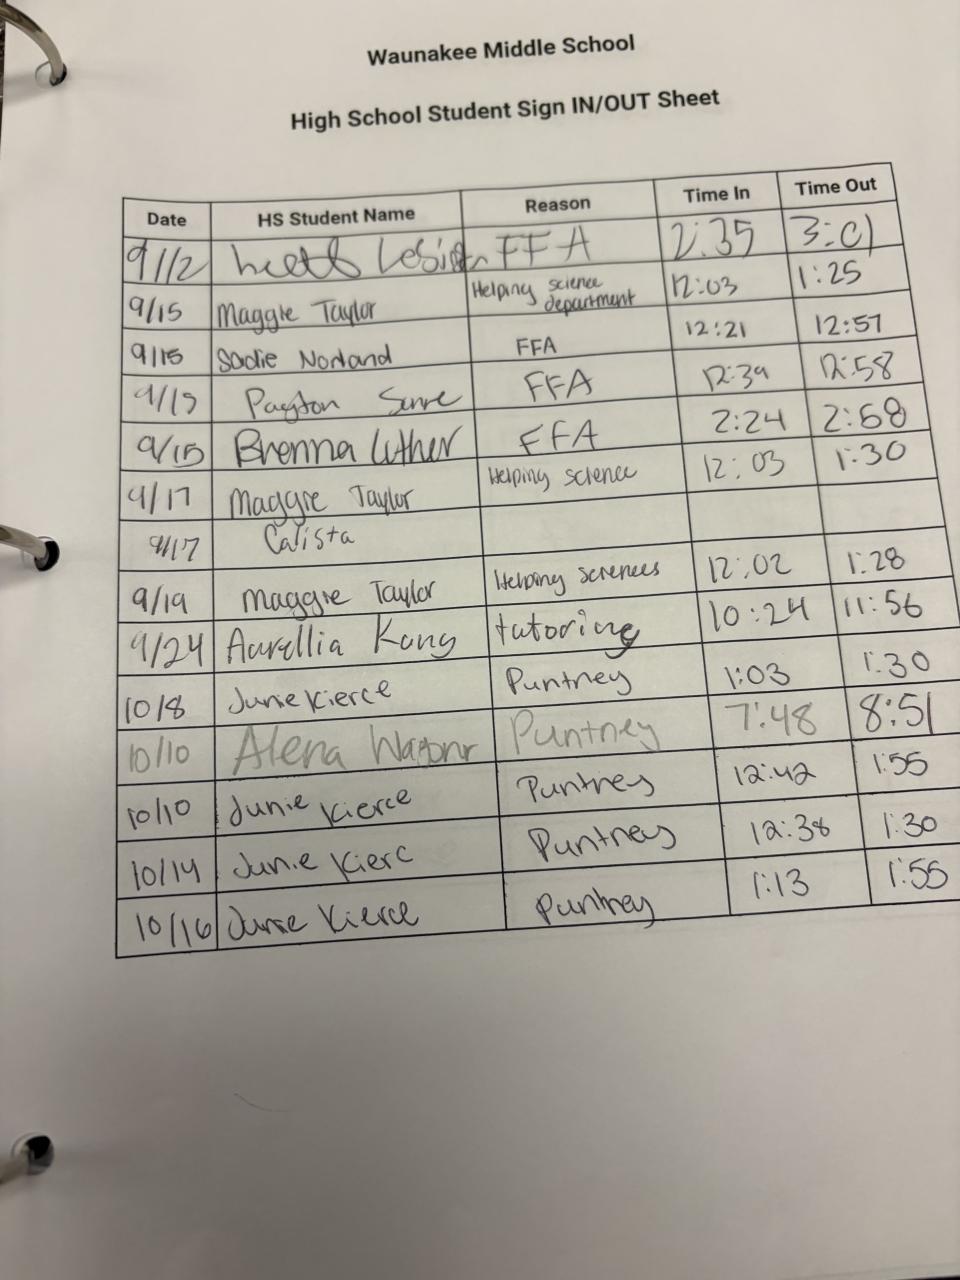 Waunakee Middle School
High School Student Sign IN/OUT Sheet
Date HS Student Name Reason Time In Time Out
9/12 FFA 2:35 3:01
9/15 Maggie Taylor Helping science department 12:03 1:25
9/15 Sadie Norland FFA 12:21 12:57
9/15 Payton FFA 12:39 12:58
9/15 Brenna Luther FFA 2:24 2:58
9/17 Maggie Taylor Helping science 12:03 1:30
9/17 Calista
9/19 Maggie Taylor Helping sciences 12:02 1:28
9/24 Aurellia Kong tutoring 10:24 11:56
10/8 Junie Kierce Puntney 1:03 1:30
10/10 Alena Puntney 7:48 8:51
10/10 Junie Kierce Puntney 12:42 1:55
10/14 Junie Kierc Puntney 12:38 1:30
10/16 Junie Kierce Puntney 1:13 1:55